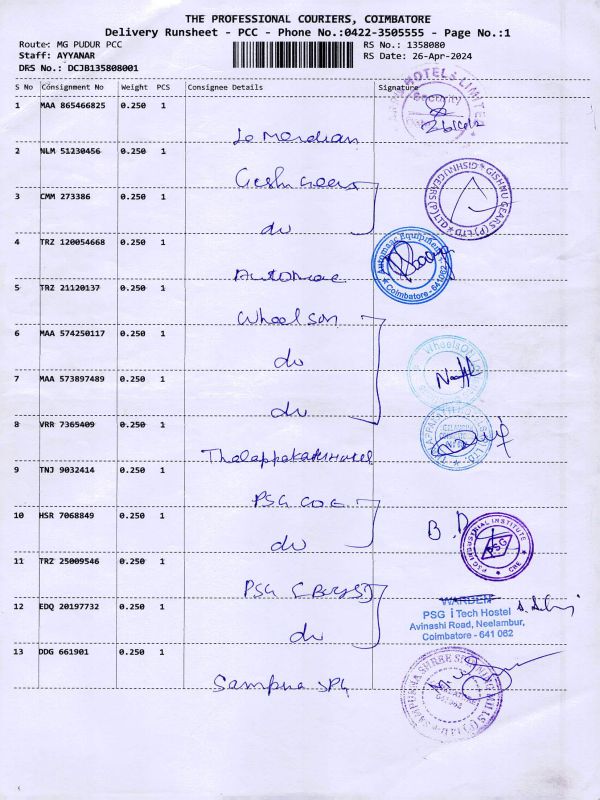 THE PROFESSIONAL COURIERS, COIMBATORE
Delivery Runsheet - PCC - Phone No.:0422-3505555 - Page No.:1
Route: MG PUDUR PCC
RS No.: 1358080
Staff: AYYANAR
RS Date: 26-Apr-2024
DRS No.: DCJB135808001
S No Consignment No Weight PCS Consignee Details Signature
1 MAA 865466825 0.250 1
HOTELS LIMITED
Security
Le Meridian
2 NLM 51230456 0.250 1
GISHNU GEARS (P) LTD
3 CMM 273386 0.250 1
do
4 TRZ 120054668 0.250 1
Automac Equipments
Coimbatore - 641062
Automac
5 TRZ 21120137 0.250 1
Wheelson
6 MAA 574250117 0.250 1
do
7 MAA 573897489 0.250 1
do
8 VRR 7365409 0.250 1
Thalappakatti Hotel
9 TNJ 9032414 0.250 1
PSG COE
10 HSR 7068849 0.250 1
B.D
PSG INDUSTRIAL INSTITUTE
PSG
CBE
do
11 TRZ 25009546 0.250 1
PSG (Boys)
12 EDQ 20197732 0.250 1
WARDEN
PSG iTech Hostel
Avinashi Road, Neelambur,
Coimbatore - 641 062
do
13 DDG 661901 0.250 1